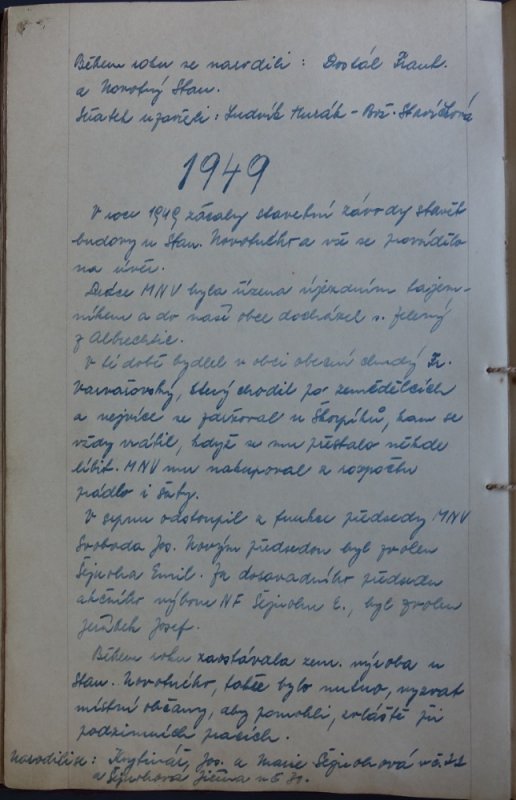 Během roku se narodili : Dostál Frant.
a Novotný Stan.
Sňatek uzavřeli : Ludvík Husák - Bož.
1949
V roce 1949 začaly stavební závody stavět
budovy u Stan. Novotného a vše se provádělo
na úvěr.
Práce MNV byla řízena újezdním tajem-
níkem a do naší obce docházel s. Jelený
z Albrechtic.
V té době bydlel v obci obecní chudý Fr.
Varvařovský, který chodil po zemědělcích
a nejvíce se zdržoval u Škopíků, kam se
vždy vrátil, když se mu přestalo někde
líbit. MNV mu nakupoval z rozpočtu
prádlo i šaty.
V srpnu odstoupil z funkce předsedy MNV
Svoboda Jos. Novým předsedou byl zvolen
Emil. Za dosavadního předsedu
akčního výboru NF E., byl zvolen
Jeřábek Josef.
Během roku zaostávala zem. výroba u
Stan. Novotného, takže bylo nutno, vyzvat
místní občany, aby pomohli, zvláště při
podzimních pracích.
Narodili se: Jos. a Marie
a Jiřina